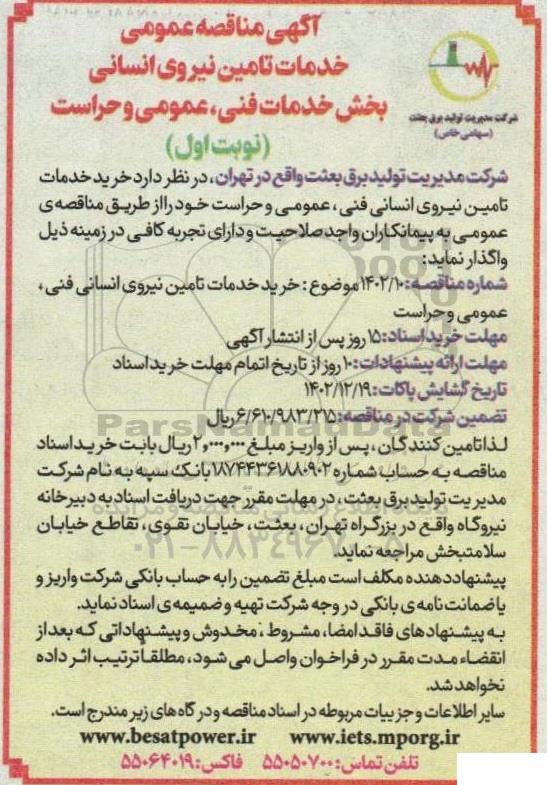 آگهی مناقصه عمومی
خدمات تامین نیروی انسانی
بخش خدمات فنی، عمومی و حراست
(نوبت اول)
شرکت مدیریت تولید برق بعثت
(سهامی خاص)
شرکت مدیریت تولید برق بعثت واقع در تهران، در نظر دارد خرید خدمات
تامین نیروی انسانی فنی، عمومی و حراست خود را از طریق مناقصه‌ی
عمومی به پیمانکاران واجد صلاحیت و دارای تجربه کافی در زمینه ذیل
واگذار نماید:
شماره مناقصه: ۱۴۰۲/۱۰ موضوع: خرید خدمات تامین نیروی انسانی فنی،
عمومی و حراست
مهلت خرید اسناد: ۱۵ روز پس از انتشار آگهی
مهلت ارائه پیشنهادات: ۱۰ روز از تاریخ اتمام مهلت خرید اسناد
تاریخ گشایش پاکات: ۱۴۰۲/۱۲/۱۹
تضمین شرکت در مناقصه: ۶/۶۱۰/۹۸۳/۲۱۵ ریال
لذا تامین کنندگان، پس از واریز مبلغ ۲,۰۰۰,۰۰۰ ریال بابت خرید اسناد
مناقصه به حساب شماره ۱۸۷۴۴۳۶۱۸۸۰۹۰۲ بانک سپه به نام شرکت
مدیریت تولید برق بعثت، در مهلت مقرر جهت دریافت اسناد به دبیرخانه
نیروگاه واقع در بزرگراه تهران، بعثت، خیابان تقوی، تقاطع خیابان
سلامتبخش مراجعه نماید.
پیشنهاد دهنده مکلف است مبلغ تضمین را به حساب بانکی شرکت واریز و
یا ضمانت نامه‌ی بانکی در وجه شرکت تهیه و ضمیمه‌ی اسناد نماید.
به پیشنهادهای فاقد امضا، مشروط، مخدوش و پیشنهاداتی که بعد از
انقضاء مدت مقرر در فراخوان واصل می شود، مطلقاً ترتیب اثر داده
نخواهد شد.
سایر اطلاعات و جزییات مربوطه در اسناد مناقصه و درگاه‌های زیر مندرج است.
www.besatpower.ir www.iets.mporg.ir
تلفن تماس: ۵۵۰۵۰۷۰۰ فاکس: ۵۵۰۶۴۰۱۹
ParsNamadData
۰۲۱-۸۸۳۴۹۶۷۰-۵